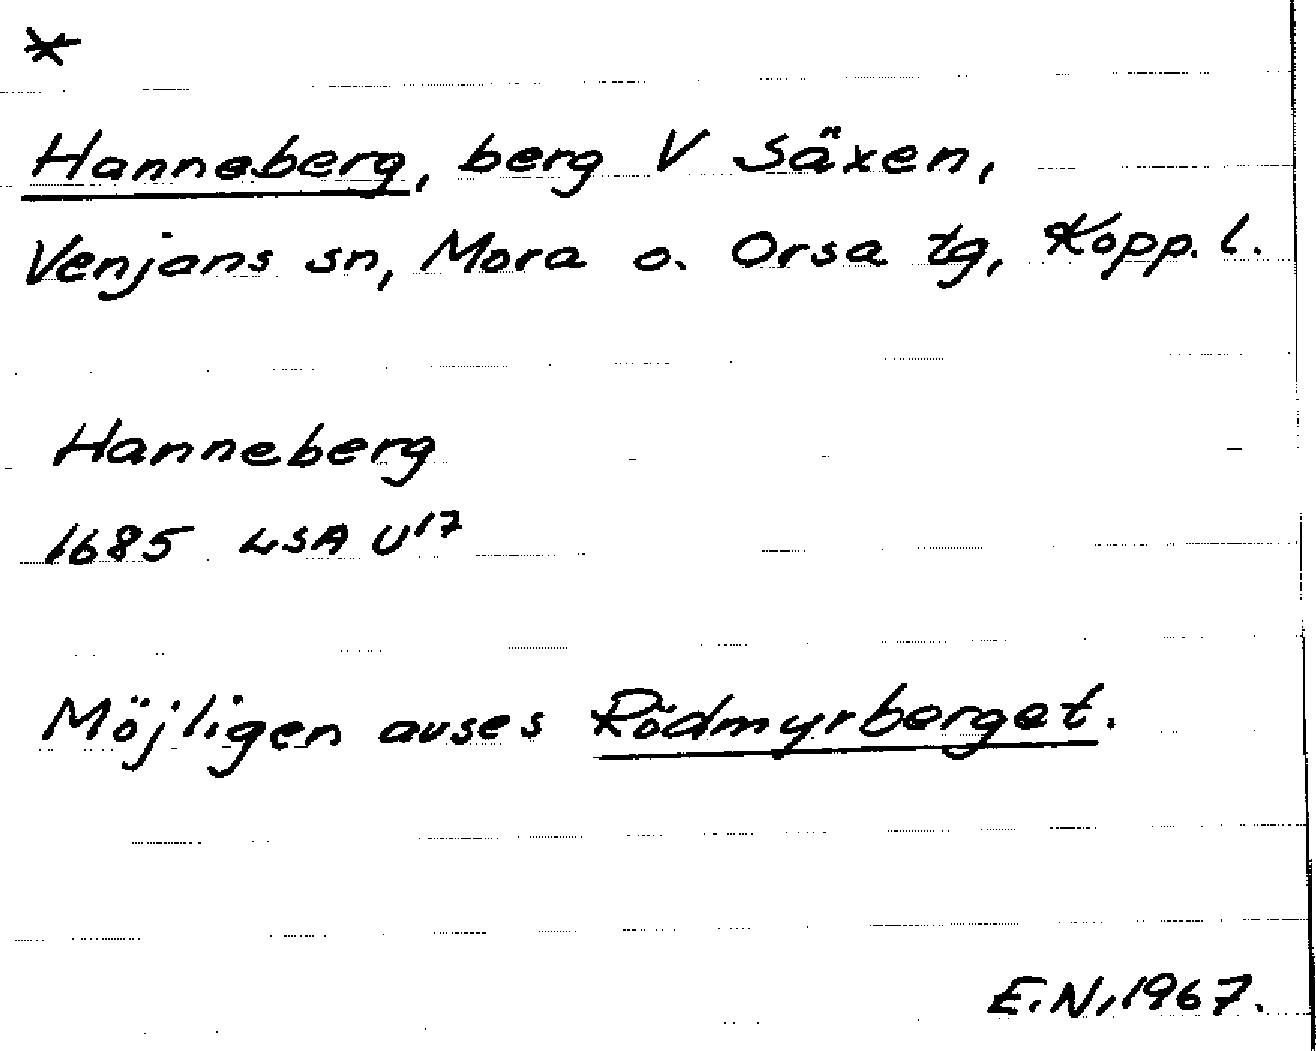 *
Hanneberg, berg V Säxen,
Venjans sn, Mora o. Orsa tg, Kopp. l.
Hanneberg
1685 LSA U¹⁷
Möjligen avses Rödmyrberget.
E.N, 1967.